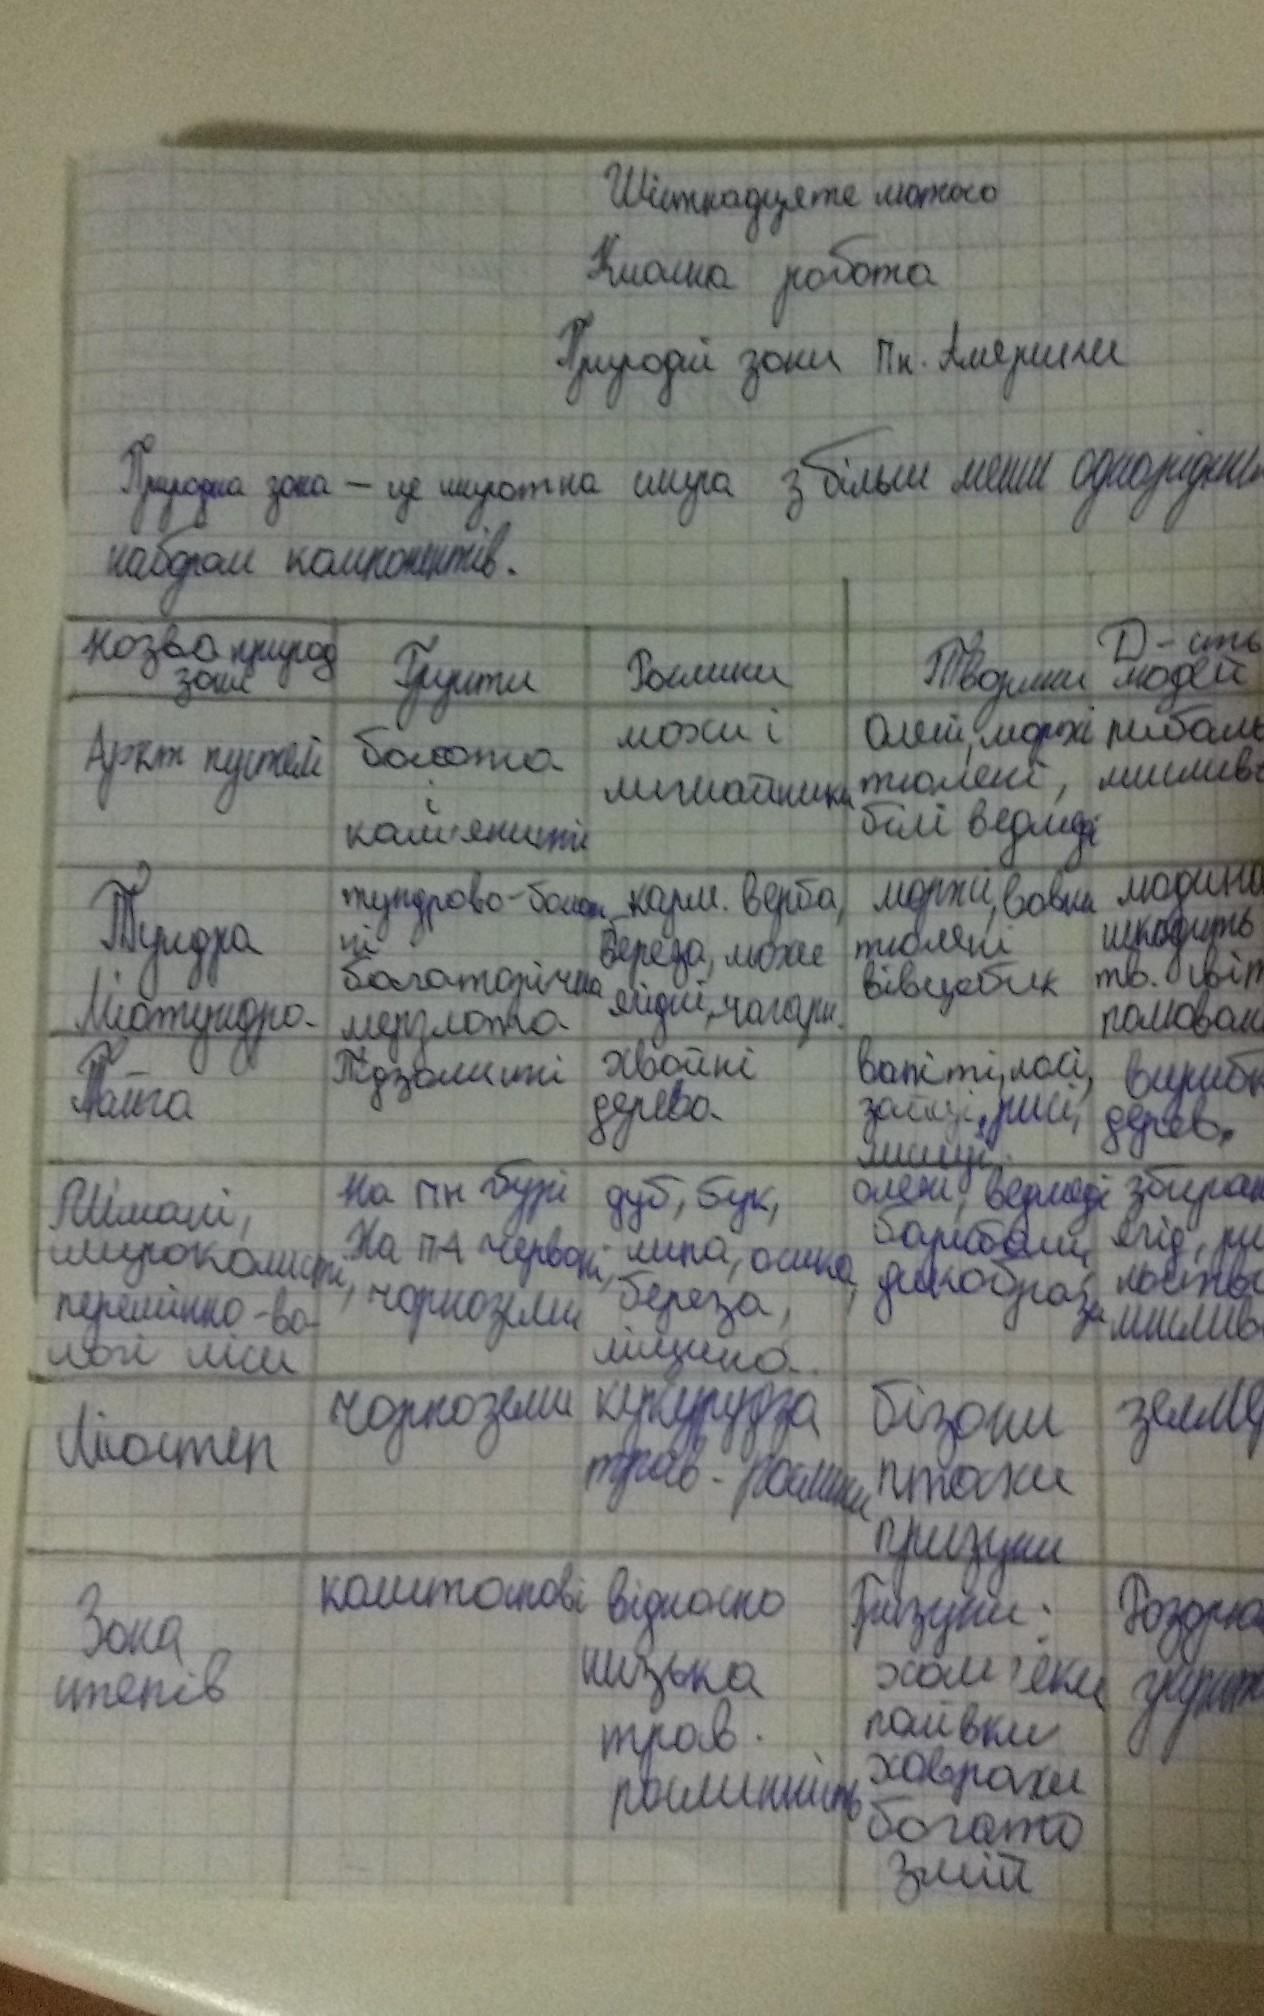 Шістнадцяте лютого
Класна робота
Природні зони Пн. Америки
Природна зона – це широтна смуга з більш менш однорідним
набором компонентів.
Назва природ
зони
Ґрунти
Рослини
Тварини
Д-сть
людей
Аркт пустелі
болотна
і
кам'янисті
мохи і
лишайники
Олені, моржі
тюлені,
білі ведмеді
рибаль
мислив
Тундра
Лісотундра
тундрово-болот
ні
багаторічна
мерзлота
карл. верба,
береза, мохи
ягідні, чагарн.
моржі, вовки
тюлені
вівцебик
людина
шкодить
тв. світ
полюван
Тайга
Підзолисті
хвойні
дерева
вапіті, лосі,
зайці, рисі,
лисиці.
вирубк
дерев,
Мішані,
широколисті,
перемінно-во-
логі ліси
На пн бурі
На пд червоні,
чорноземи
дуб, бук,
липа, осика,
береза,
ліщина.
олені, ведмеді
барибали,
дикобрази
збиран
ягід, ри
мислив
Лісостеп
чорноземи
кукурудза
трав. рослини
бізони
птахи
гризуни
земле
Зона
степів
каштанові
відносно
низька
трав.
рослинність
Гризуни:
хом'яки
полівки
ховрахи
багато
змій
Розорю
ґрунт